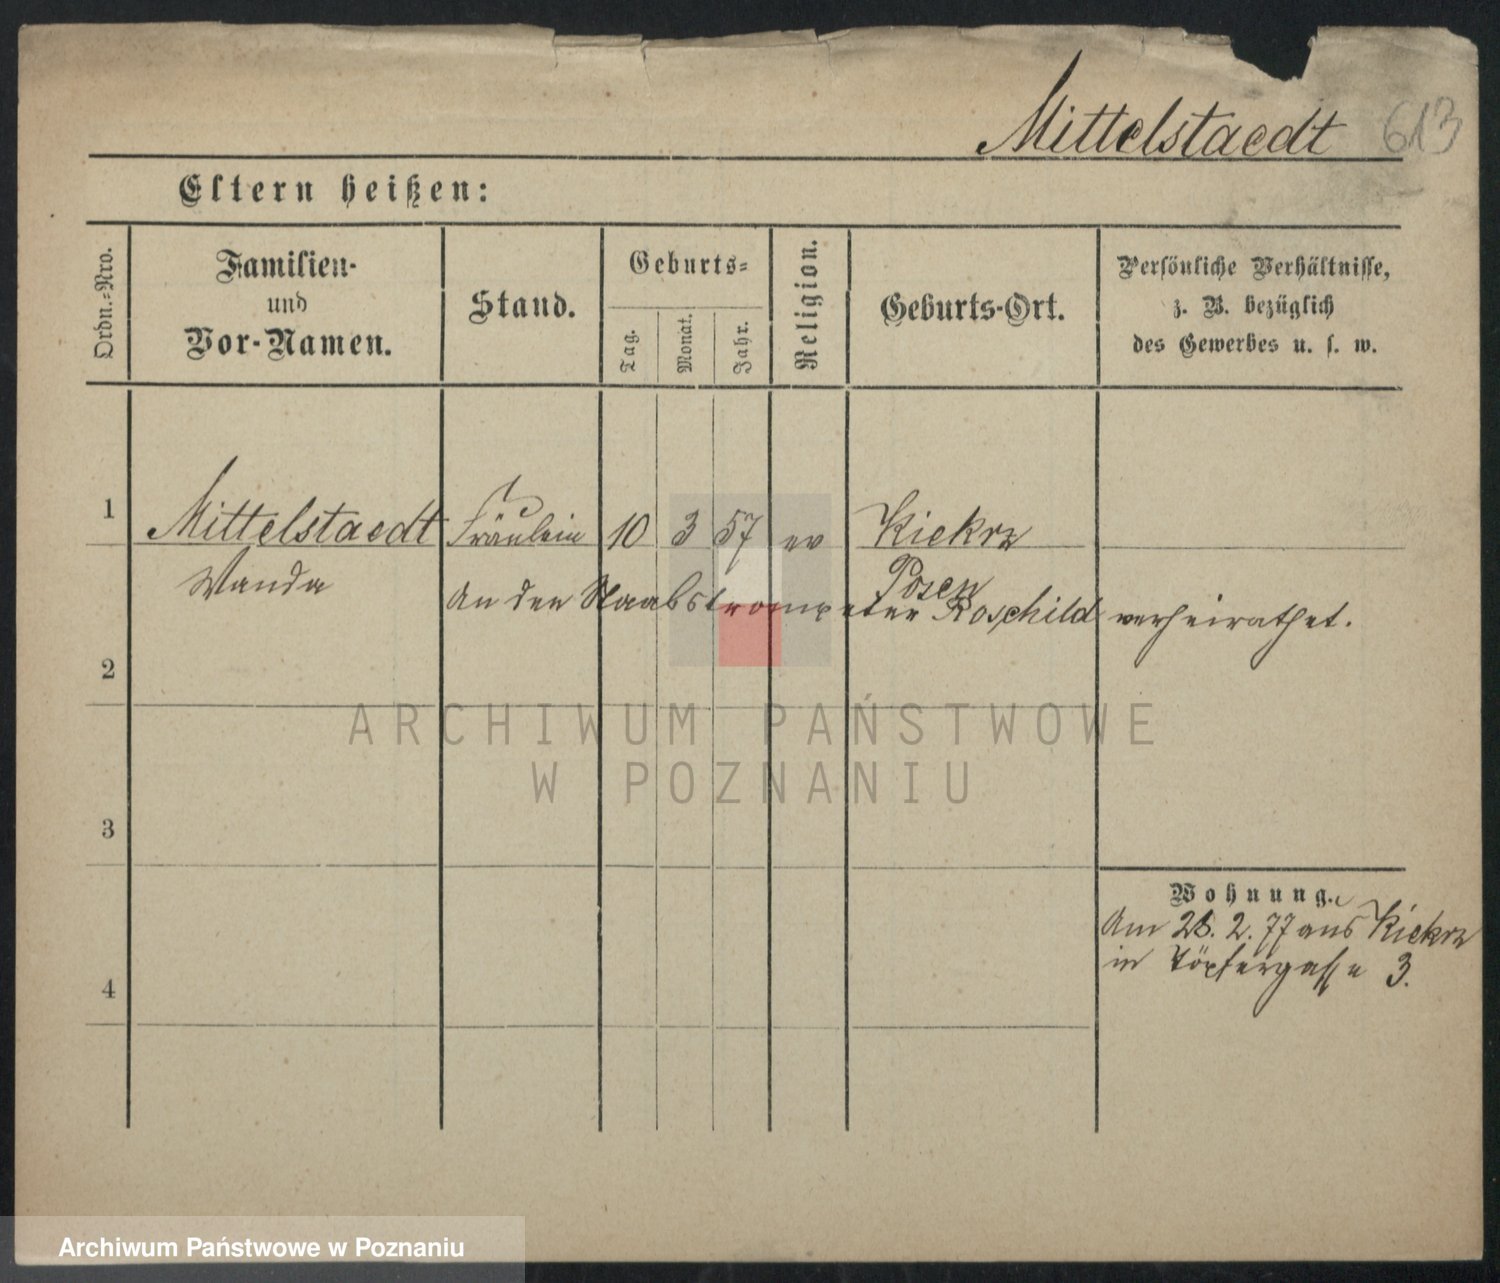 Mittelstaedt 613
Eltern heißen:
Ordn.-Nro.
Familien-
und
Vor-Namen.
Stand.
Geburts-
Tag.
Monat.
Jahr.
Religion.
Geburts-Ort.
Persönliche Verhältnisse,
z. B. bezüglich
des Gewerbes u. s. w.
1 Mittelstaedt Fräulein 10 3 57 ev Kiekrz
Wanda Posen
An den Staabstrompeter Roschild verheirathet.
2
ARCHIWUM PAŃSTWOWE
W POZNANIU
3
Wohnung.
Am 28. 2. 77 aus Kiekrz
in Töpfergasse 3.
4
Archiwum Państwowe w Poznaniu